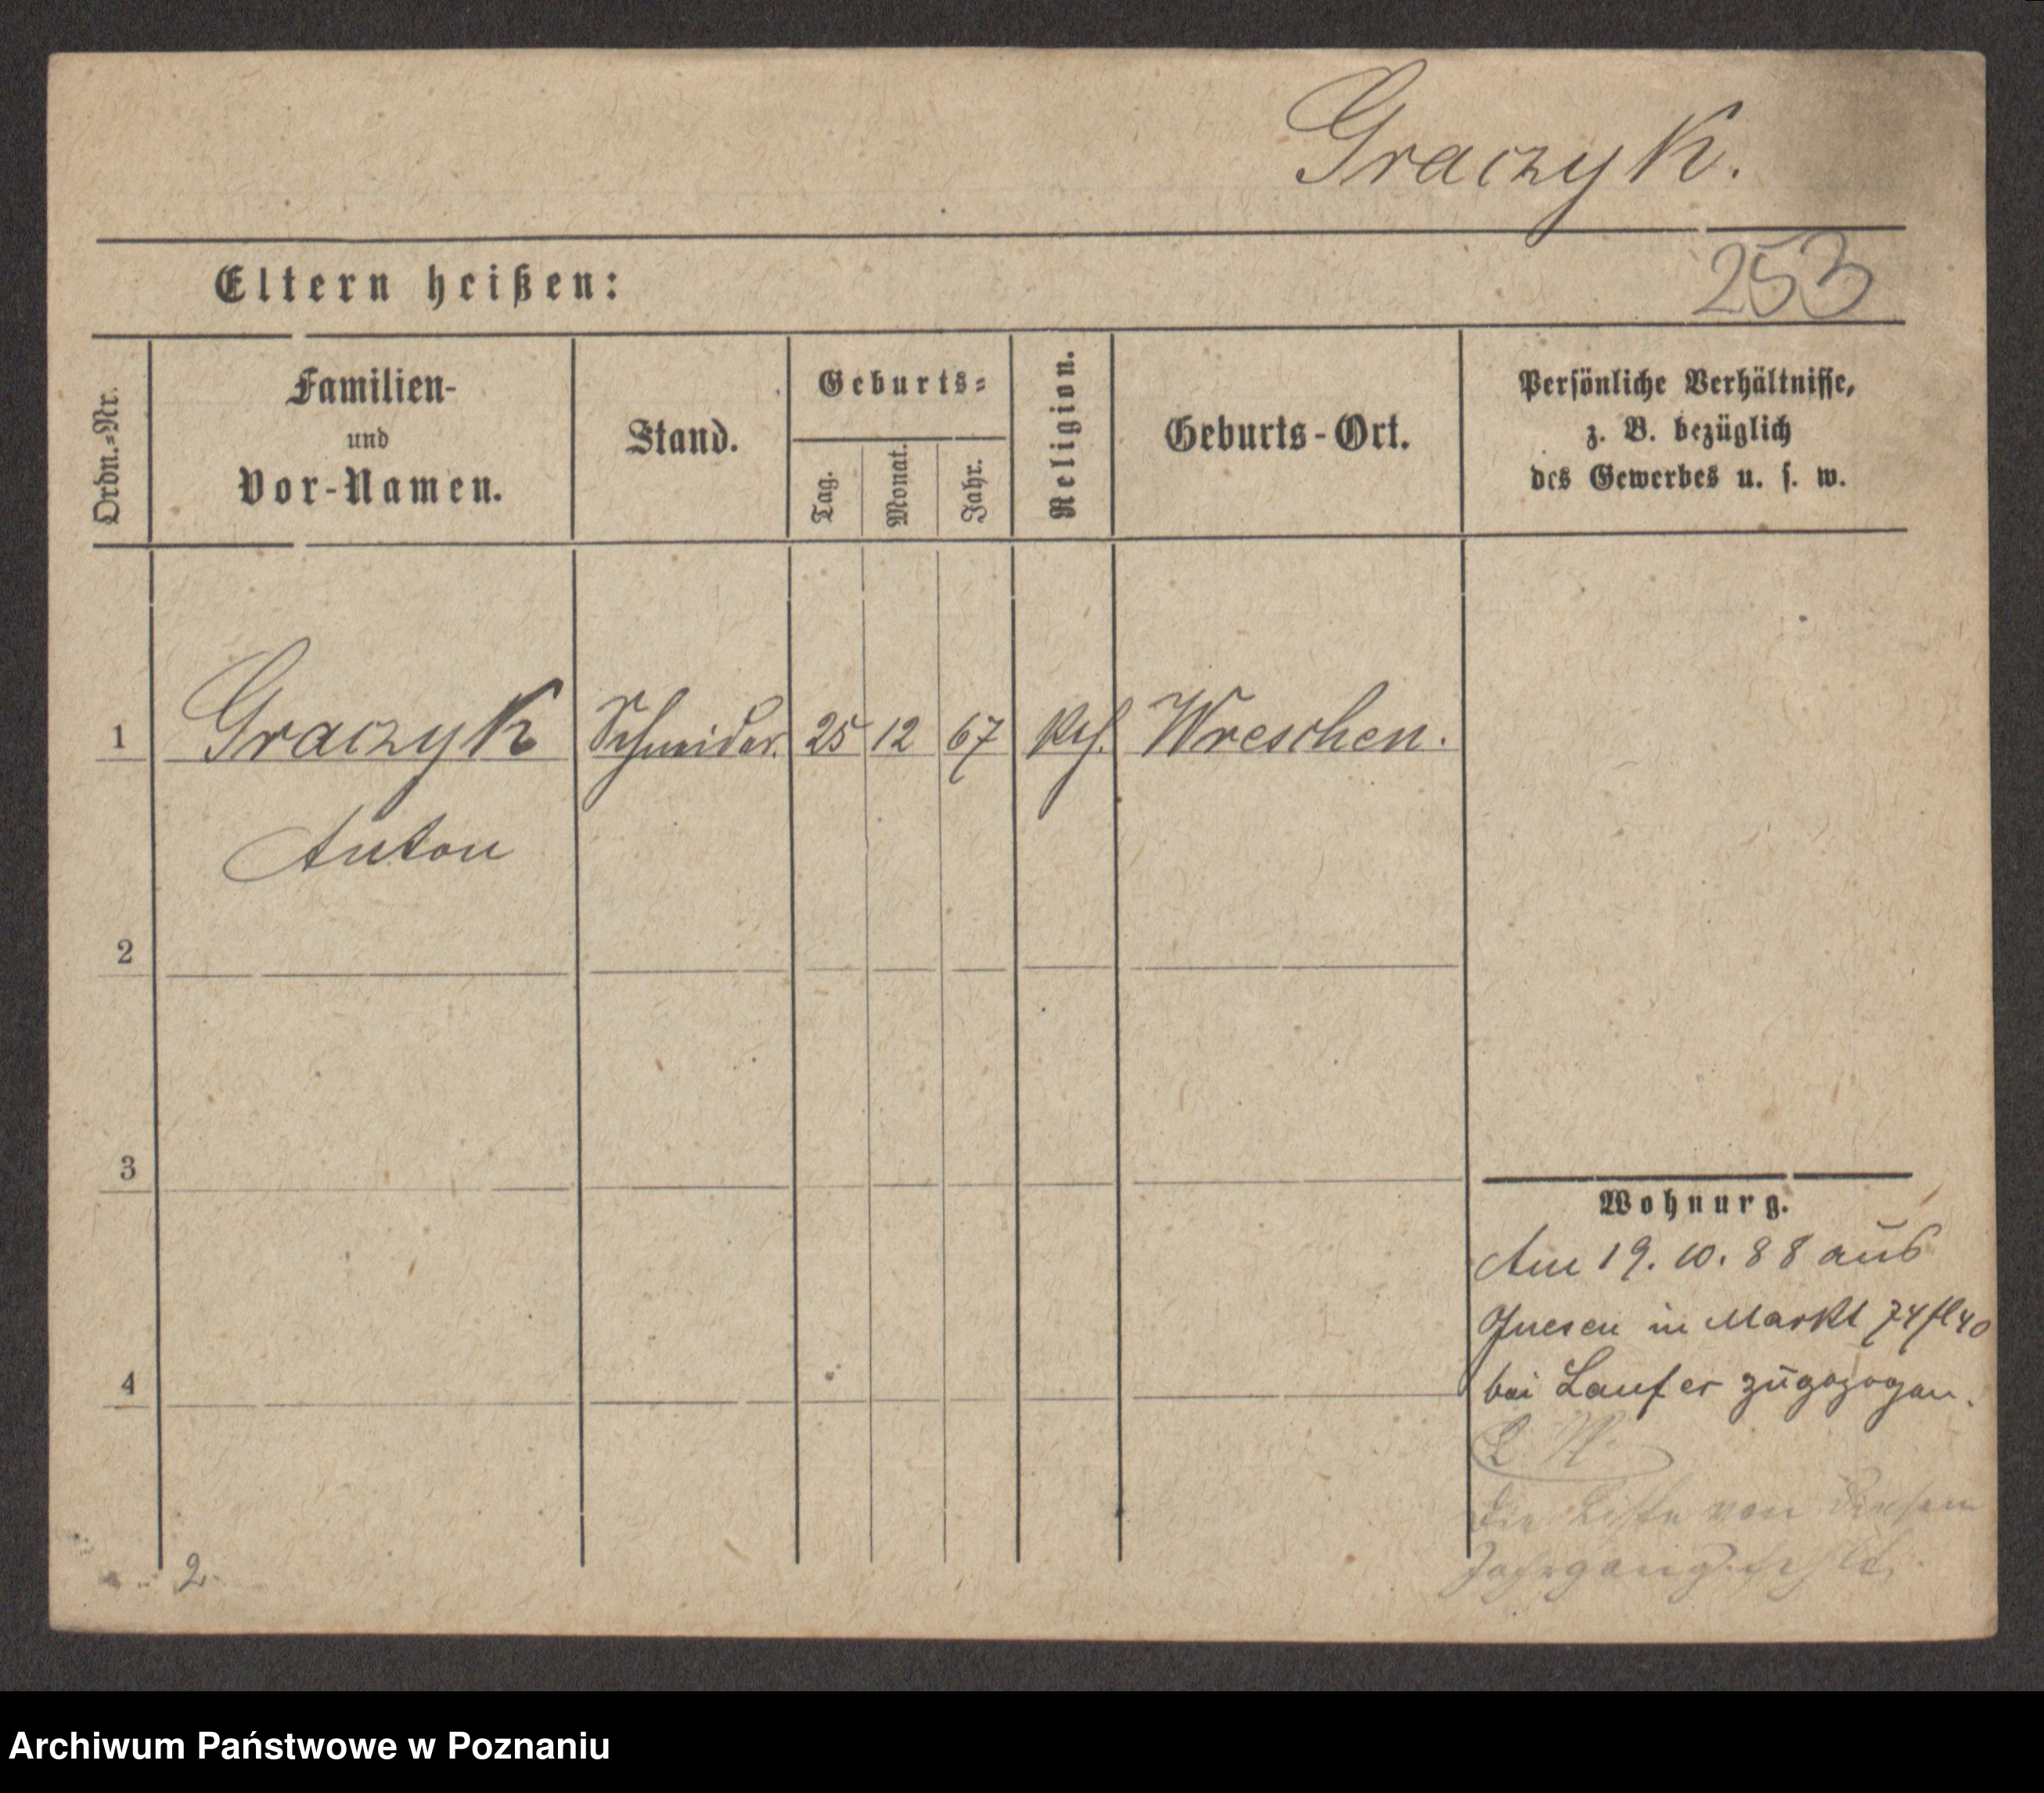 Graczyk.
253
Eltern heißen:
Ordn.=Nr.
Familien-
und
Vor-Namen.
Stand.
Geburts=
Tag.
Monat.
Jahr.
Religion.
Geburts-Ort.
Persönliche Verhältnisse,
z. B. bezüglich
des Gewerbes u. s. w.
1 Graczyk Schneider. 25 12 67 Kth. Wreschen.
Anton
2
3
4
Wohnurg.
Am 19. 10. 88 aus
Gnesen in Markt 74
bei Laufer zugezogen.
Die Liste von diesem
Jahrgang fehlt.
2.
Archiwum Państwowe w Poznaniu